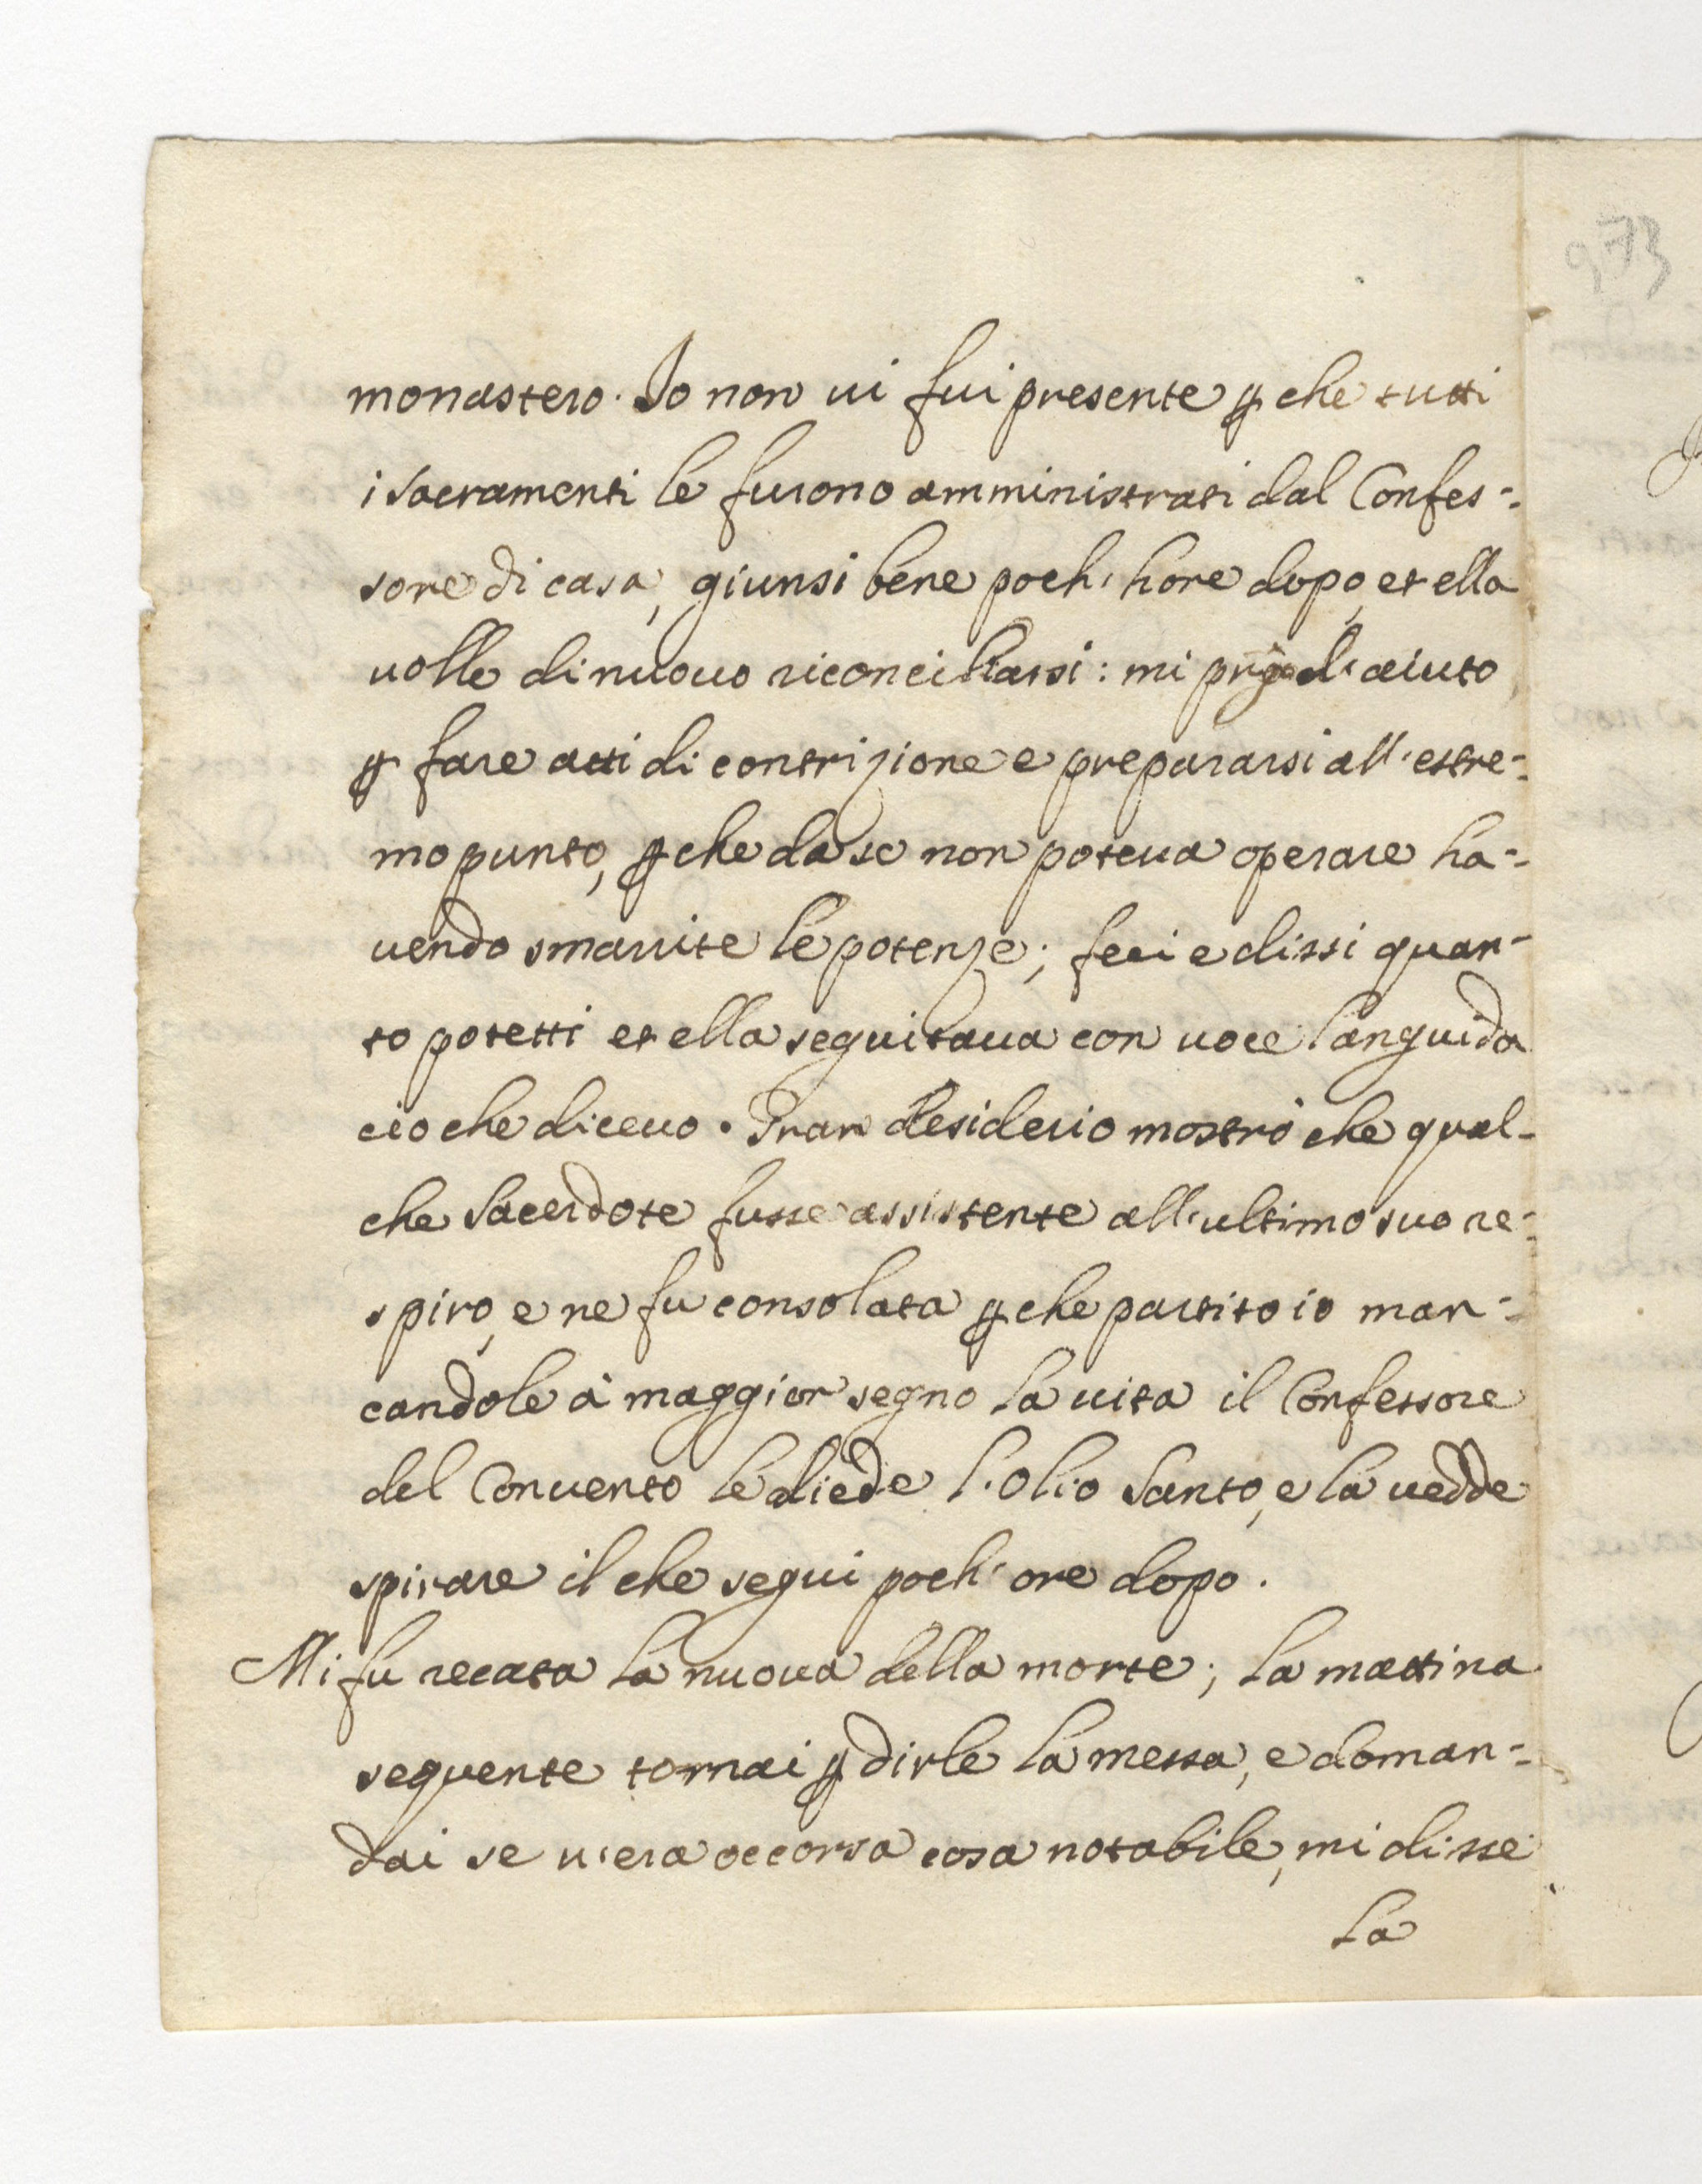 monastero. Io non ui fui presente ꝑche tutti
i Sacramenti le furono amministrati dal Confes=
sore di casa, giunsi bene poch' hore dopo, et ella
uolle di nuouo riconciliarsi: mi pregò d'aiuto
ꝑ fare atti di contrizione e prepararsi all'estre=
mo punto, ꝑche da se non poteua operare ha=
uendo smarrite le potenze; feci e dissi quan=
to potetti et ella seguitaua con uoce languida
cio che diceuo. Gran desiderio mostrò che qual-
che Sacerdote fusse assistente all'ultimo suo re=
spiro, e ne fu consolata ꝑche partito io man=
candole à maggior segno la uita il Confessore
del Conuento le diede l'Olio Santo, e la uedde
spirare il che segui poch' ore dopo.
Mi fu recata la nuoua della morte; la mattina
seguente tornai ꝑ dirle la messa, e doman=
dai se u'era occorsa cosa notabile, mi disse
la
973